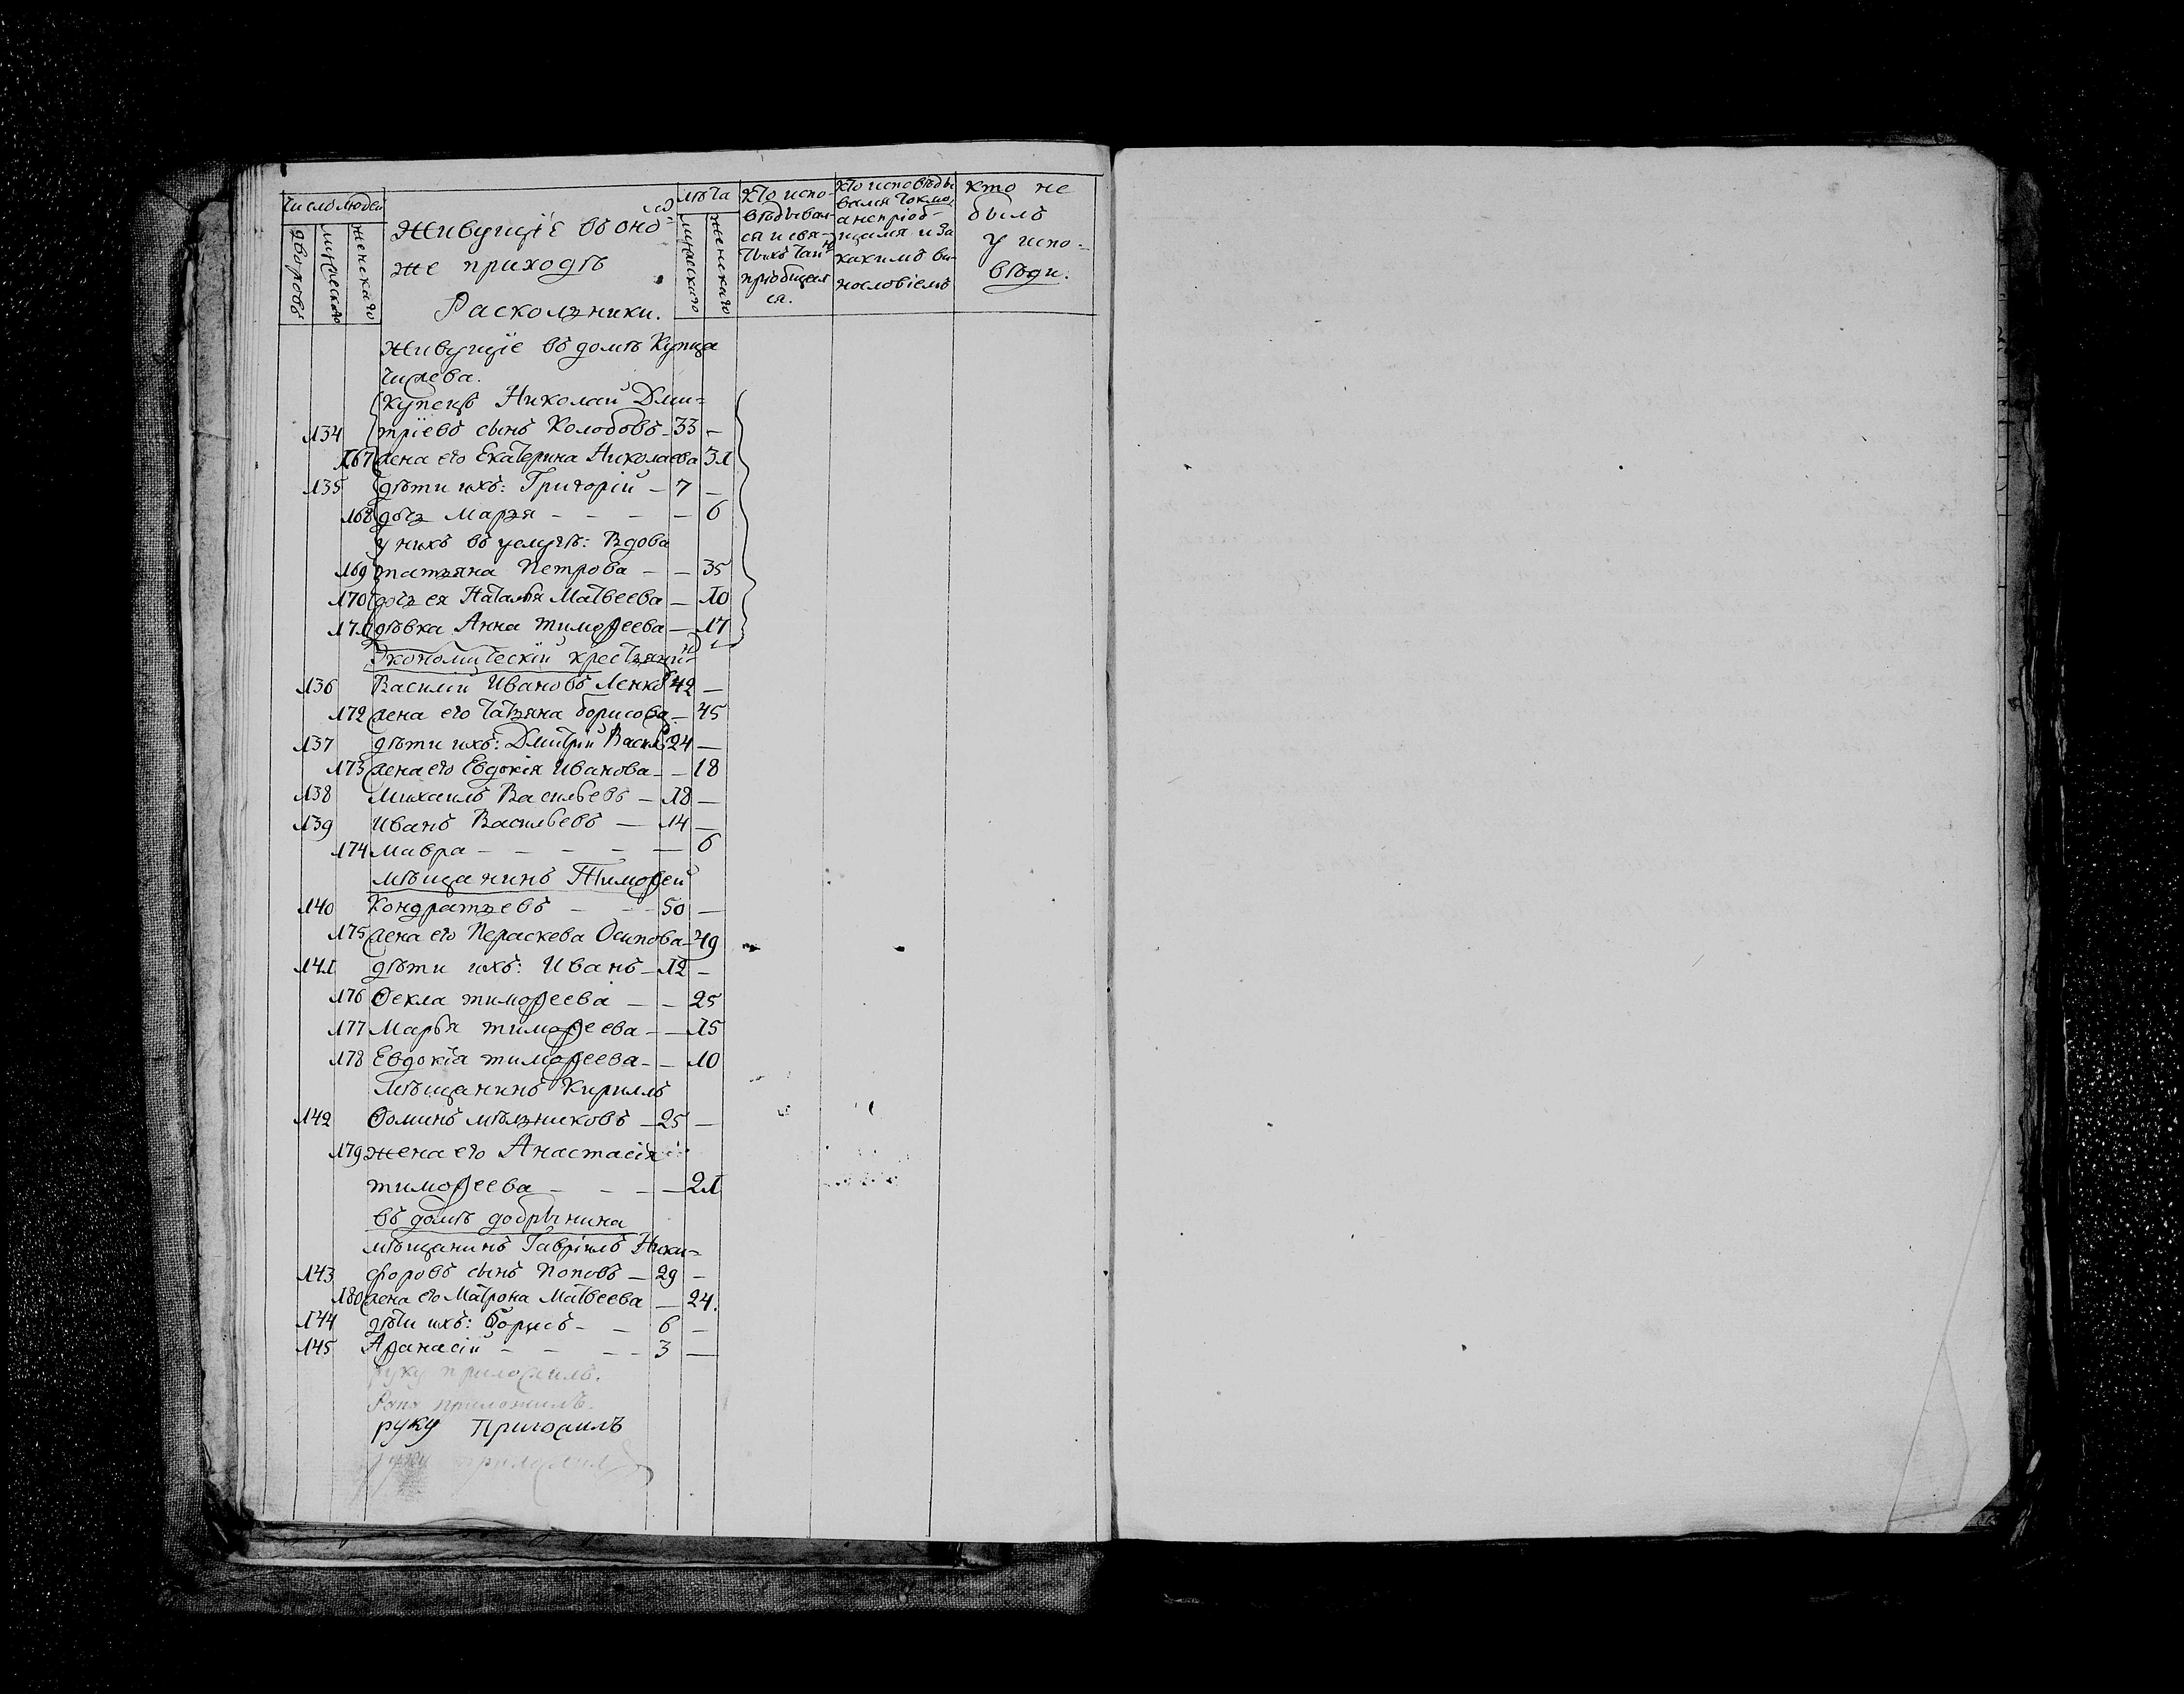 число людей
дворовъ
мужеска
женскаго
Живущіе въ ономъ
же приходѣ
Раскользники.
лѣта
мужескаго
женскаго
кто испо-
вѣдывал-
ся и свя-
тыхъ тайнъ
пріобщал
ся.
кто исповѣды
вался токмо,
а непріоб-
щался и за
какимъ ви-
нословіемъ
кто не
былъ
у испо-
вѣди.
живущіе въ домѣ Купца
купецъ Николай Дми=
134 тріевъ сынъ Колобовъ - 33 -
167 жена его Екатерина Николаева 31
135 дѣти ихъ: Григорій - 7 -
168 дочь Марья - - - - 6
у нихъ въ услугѣ: Вдова
169 татьяна Петрова - - 35
170 дочь ея Наталья Матвеева - 10
171 дѣвка Анна тимофеева - 17
Экономическій крестьянинъ
136 Василій Ивановъ 42 -
172 жена его Татьяна борисова - 45
137 дѣти ихъ: Дмитрій Васил 24 -
173 жена его Евдокія Иванова - - 18
138 Михаилъ Васильевъ - 18 -
139 Иванъ Васильевъ - 14 -
174 Мавра - - - - - 6
мѣщанинъ Тимофей
140 Кондратьевъ - - 50 -
175 жена его Пераскева Осипова - 49
141 дѣти ихъ: Иванъ - 12 -
176 Фекла тимофеева - - 25
177 Марья тимофеева - - 15
178 Евдокіа тимофеева - - 10
Мѣщанинъ Кириллъ
142 Фоминъ мѣльниковъ - 25 -
179 жена его Анастасія
тимофеева - - - - 21
въ домѣ добрынина
мѣщанинъ Гавріилъ Ники=
143 форовъ сынъ Поповъ - 29 -
180 жена его Матрона Матвеева - 24.
144 дѣти ихъ: Борисъ - - 6 -
145 Афанасій - - - - 3 -
руку приложилъ.
приложилъ.
руку Приложилъ
приложилъ